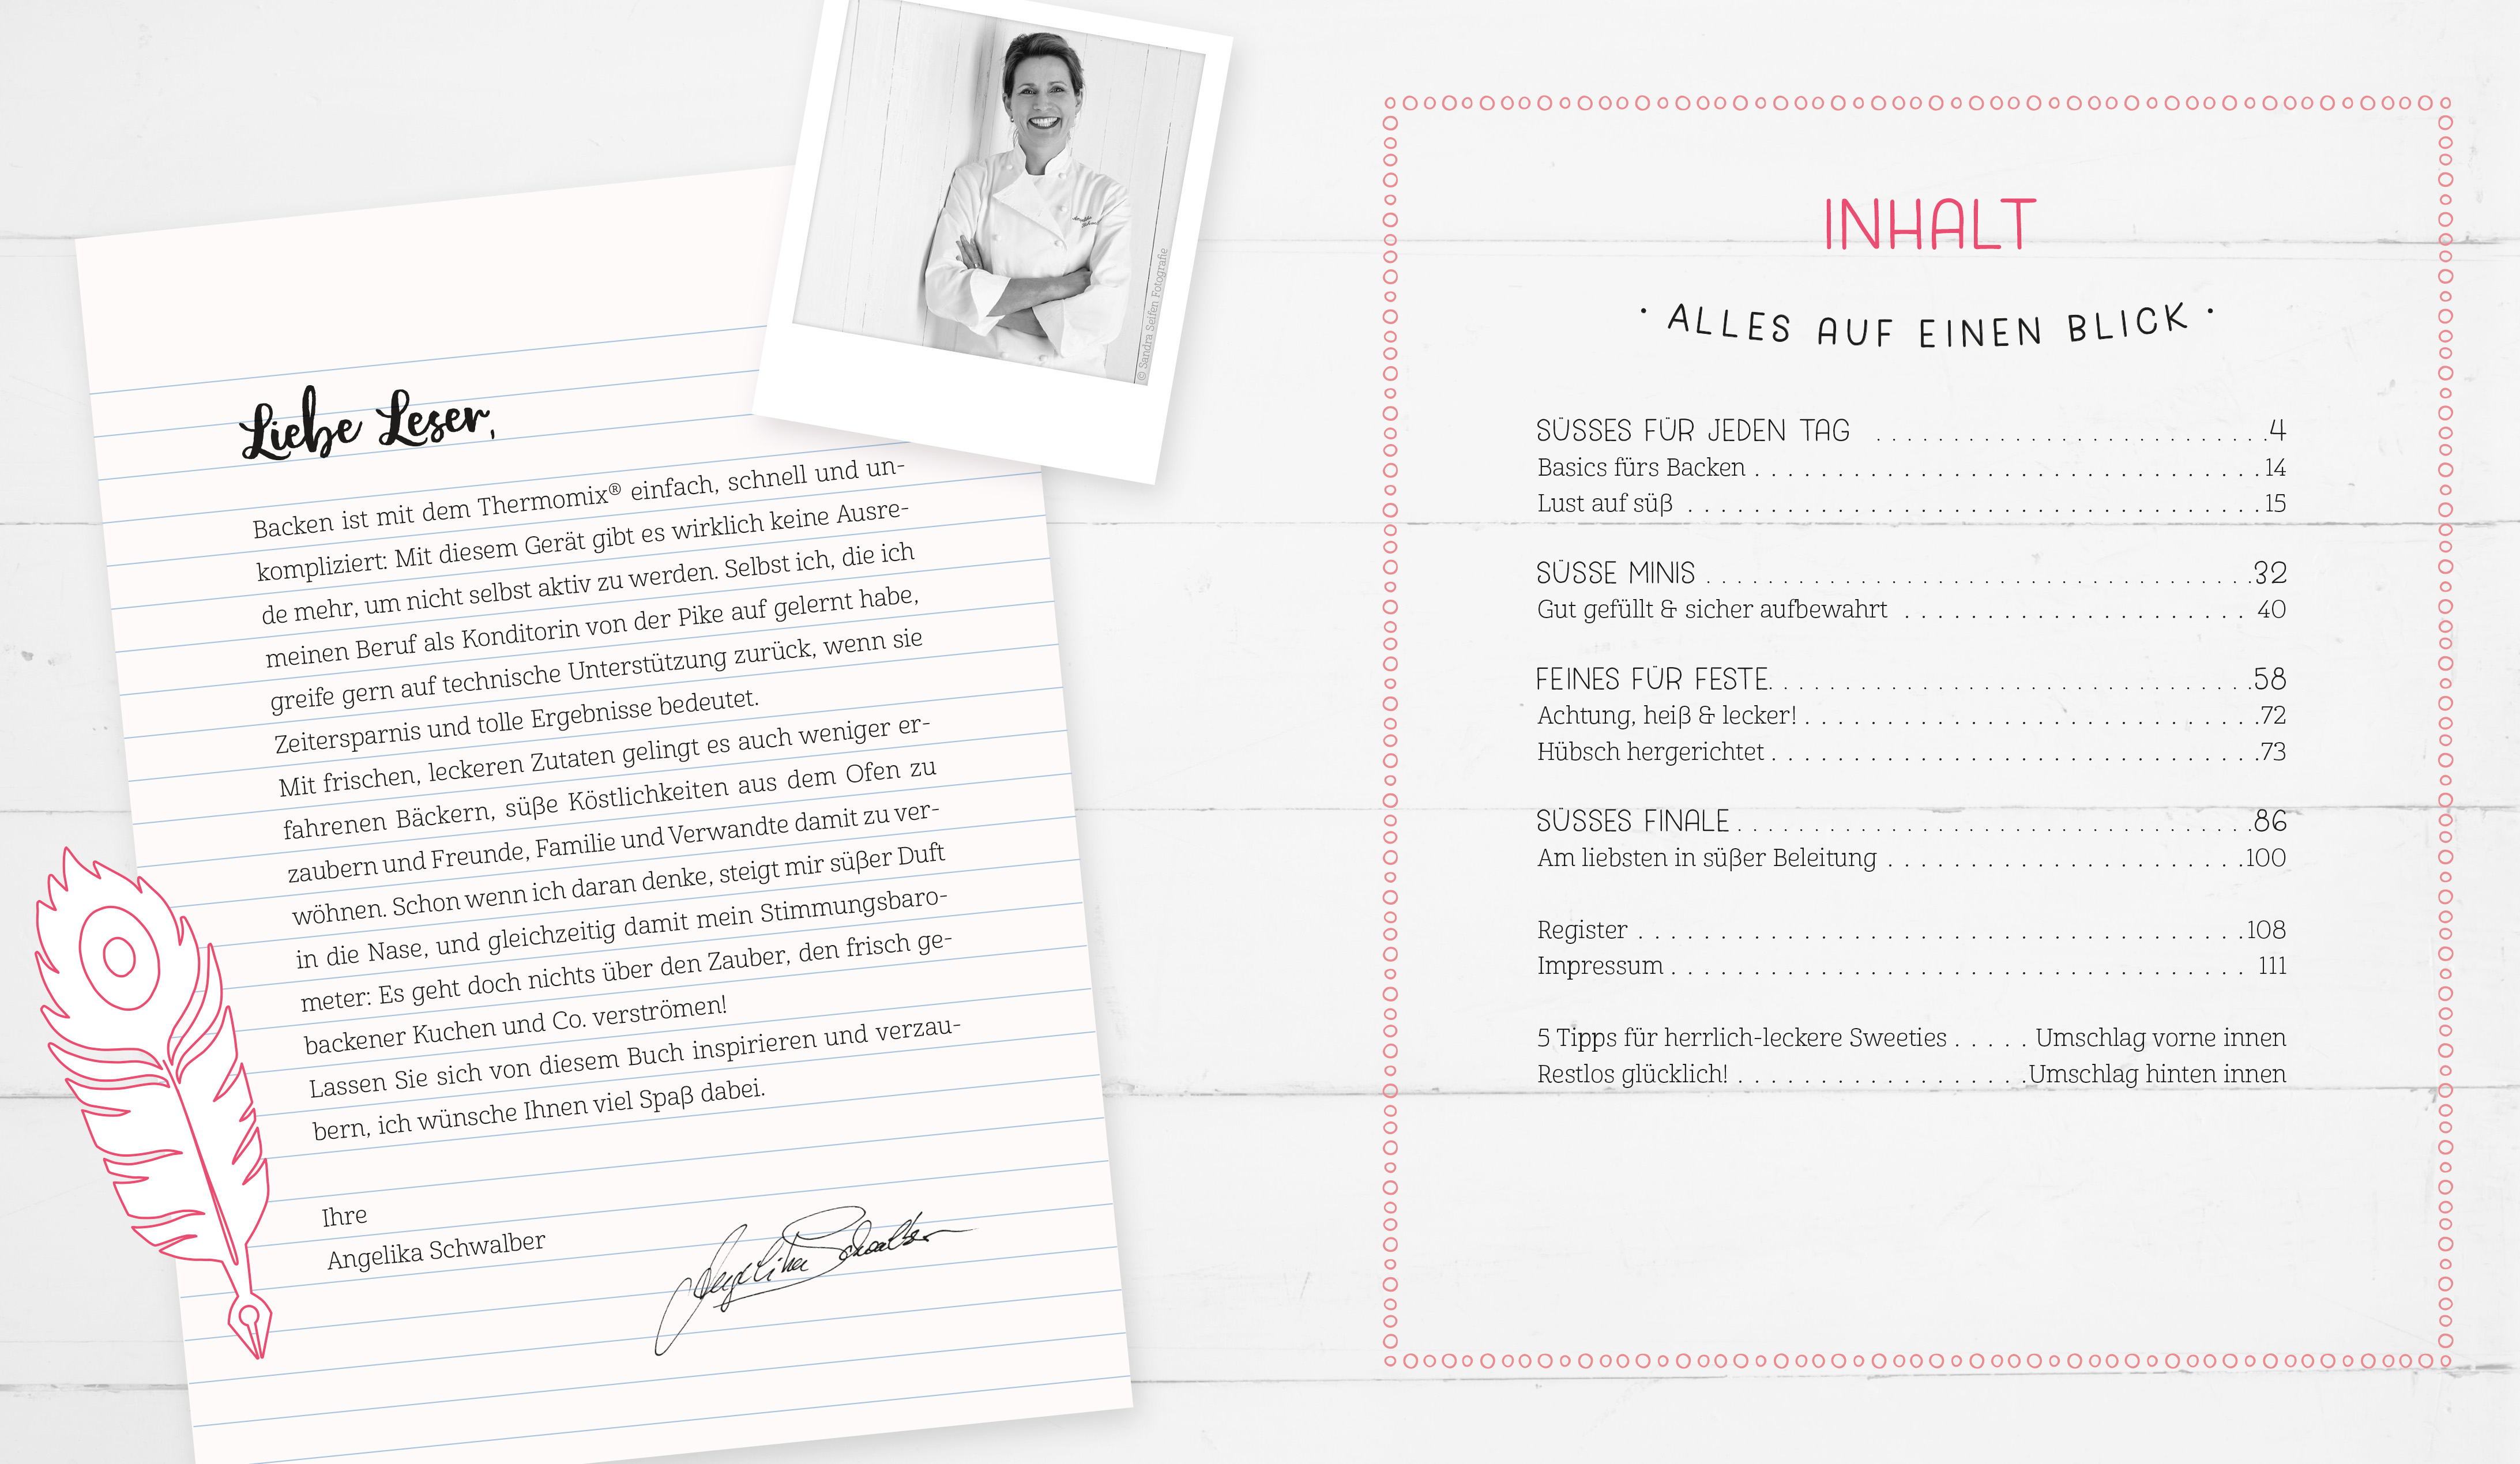 Liebe Leser,
Backen ist mit dem Thermomix® einfach, schnell und un-
kompliziert: Mit diesem Gerät gibt es wirklich keine Ausre-
de mehr, um nicht selbst aktiv zu werden. Selbst ich, die ich
meinen Beruf als Konditorin von der Pike auf gelernt habe,
greife gern auf technische Unterstützung zurück, wenn sie
Zeitersparnis und tolle Ergebnisse bedeutet.
Mit frischen, leckeren Zutaten gelingt es auch weniger er-
fahrenen Bäckern, süße Köstlichkeiten aus dem Ofen zu
zaubern und Freunde, Familie und Verwandte damit zu ver-
wöhnen. Schon wenn ich daran denke, steigt mir süßer Duft
in die Nase, und gleichzeitig damit mein Stimmungsbaro-
meter: Es geht doch nichts über den Zauber, den frisch ge-
backener Kuchen und Co. verströmen!
Lassen Sie sich von diesem Buch inspirieren und verzau-
bern, ich wünsche Ihnen viel Spaß dabei.
Ihre
Angelika Schwalber
Angelika Schwalber
© Sandra Seifen Fotografie
INHALT
· ALLES AUF EINEN BLICK ·
SÜSSES FÜR JEDEN TAG . . . . . . . . . . . . . . . . . . . . . . . . . . 4
Basics fürs Backen . . . . . . . . . . . . . . . . . . . . . . . . . . . . . . . 14
Lust auf süß . . . . . . . . . . . . . . . . . . . . . . . . . . . . . . . . . . . 15
SÜSSE MINIS . . . . . . . . . . . . . . . . . . . . . . . . . . . . . . . . . . . 32
Gut gefüllt & sicher aufbewahrt . . . . . . . . . . . . . . . . . . . . . 40
FEINES FÜR FESTE. . . . . . . . . . . . . . . . . . . . . . . . . . . . . . . 58
Achtung, heiß & lecker! . . . . . . . . . . . . . . . . . . . . . . . . . . . . 72
Hübsch hergerichtet . . . . . . . . . . . . . . . . . . . . . . . . . . . . . . 73
SÜSSES FINALE . . . . . . . . . . . . . . . . . . . . . . . . . . . . . . . . . 86
Am liebsten in süßer Beleitung . . . . . . . . . . . . . . . . . . . . . . 100
Register . . . . . . . . . . . . . . . . . . . . . . . . . . . . . . . . . . . . . 108
Impressum . . . . . . . . . . . . . . . . . . . . . . . . . . . . . . . . . . . 111
5 Tipps für herrlich-leckere Sweeties . . . . . Umschlag vorne innen
Restlos glücklich! . . . . . . . . . . . . . . . . . . Umschlag hinten innen